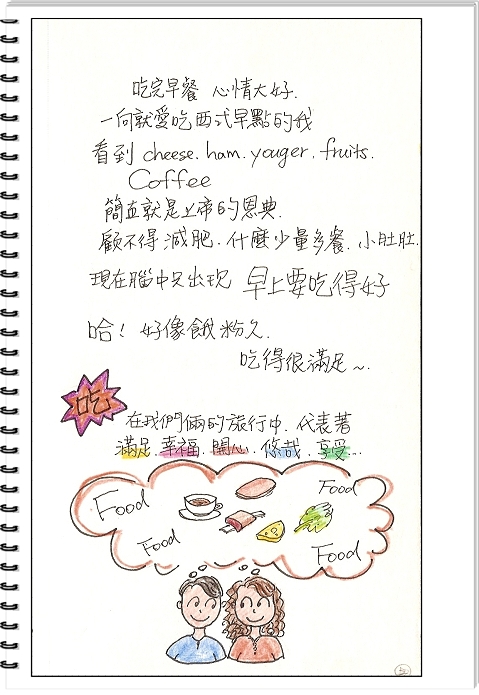 吃完早餐 心情大好.
一向就愛吃西式早點的我
看到 cheese. ham. youger. fruits.
Coffee
簡直就是上帝的恩典.
顧不得減肥. 什麼少量多餐. 小肚肚.
現在腦中只出現 早上要吃得好
哈! 好像餓粉久.
吃得很滿足~.
吃
在我們倆的旅行中. 代表著
滿足. 幸福. 開心. 悠哉. 享受...
Food
Food
Food
Food